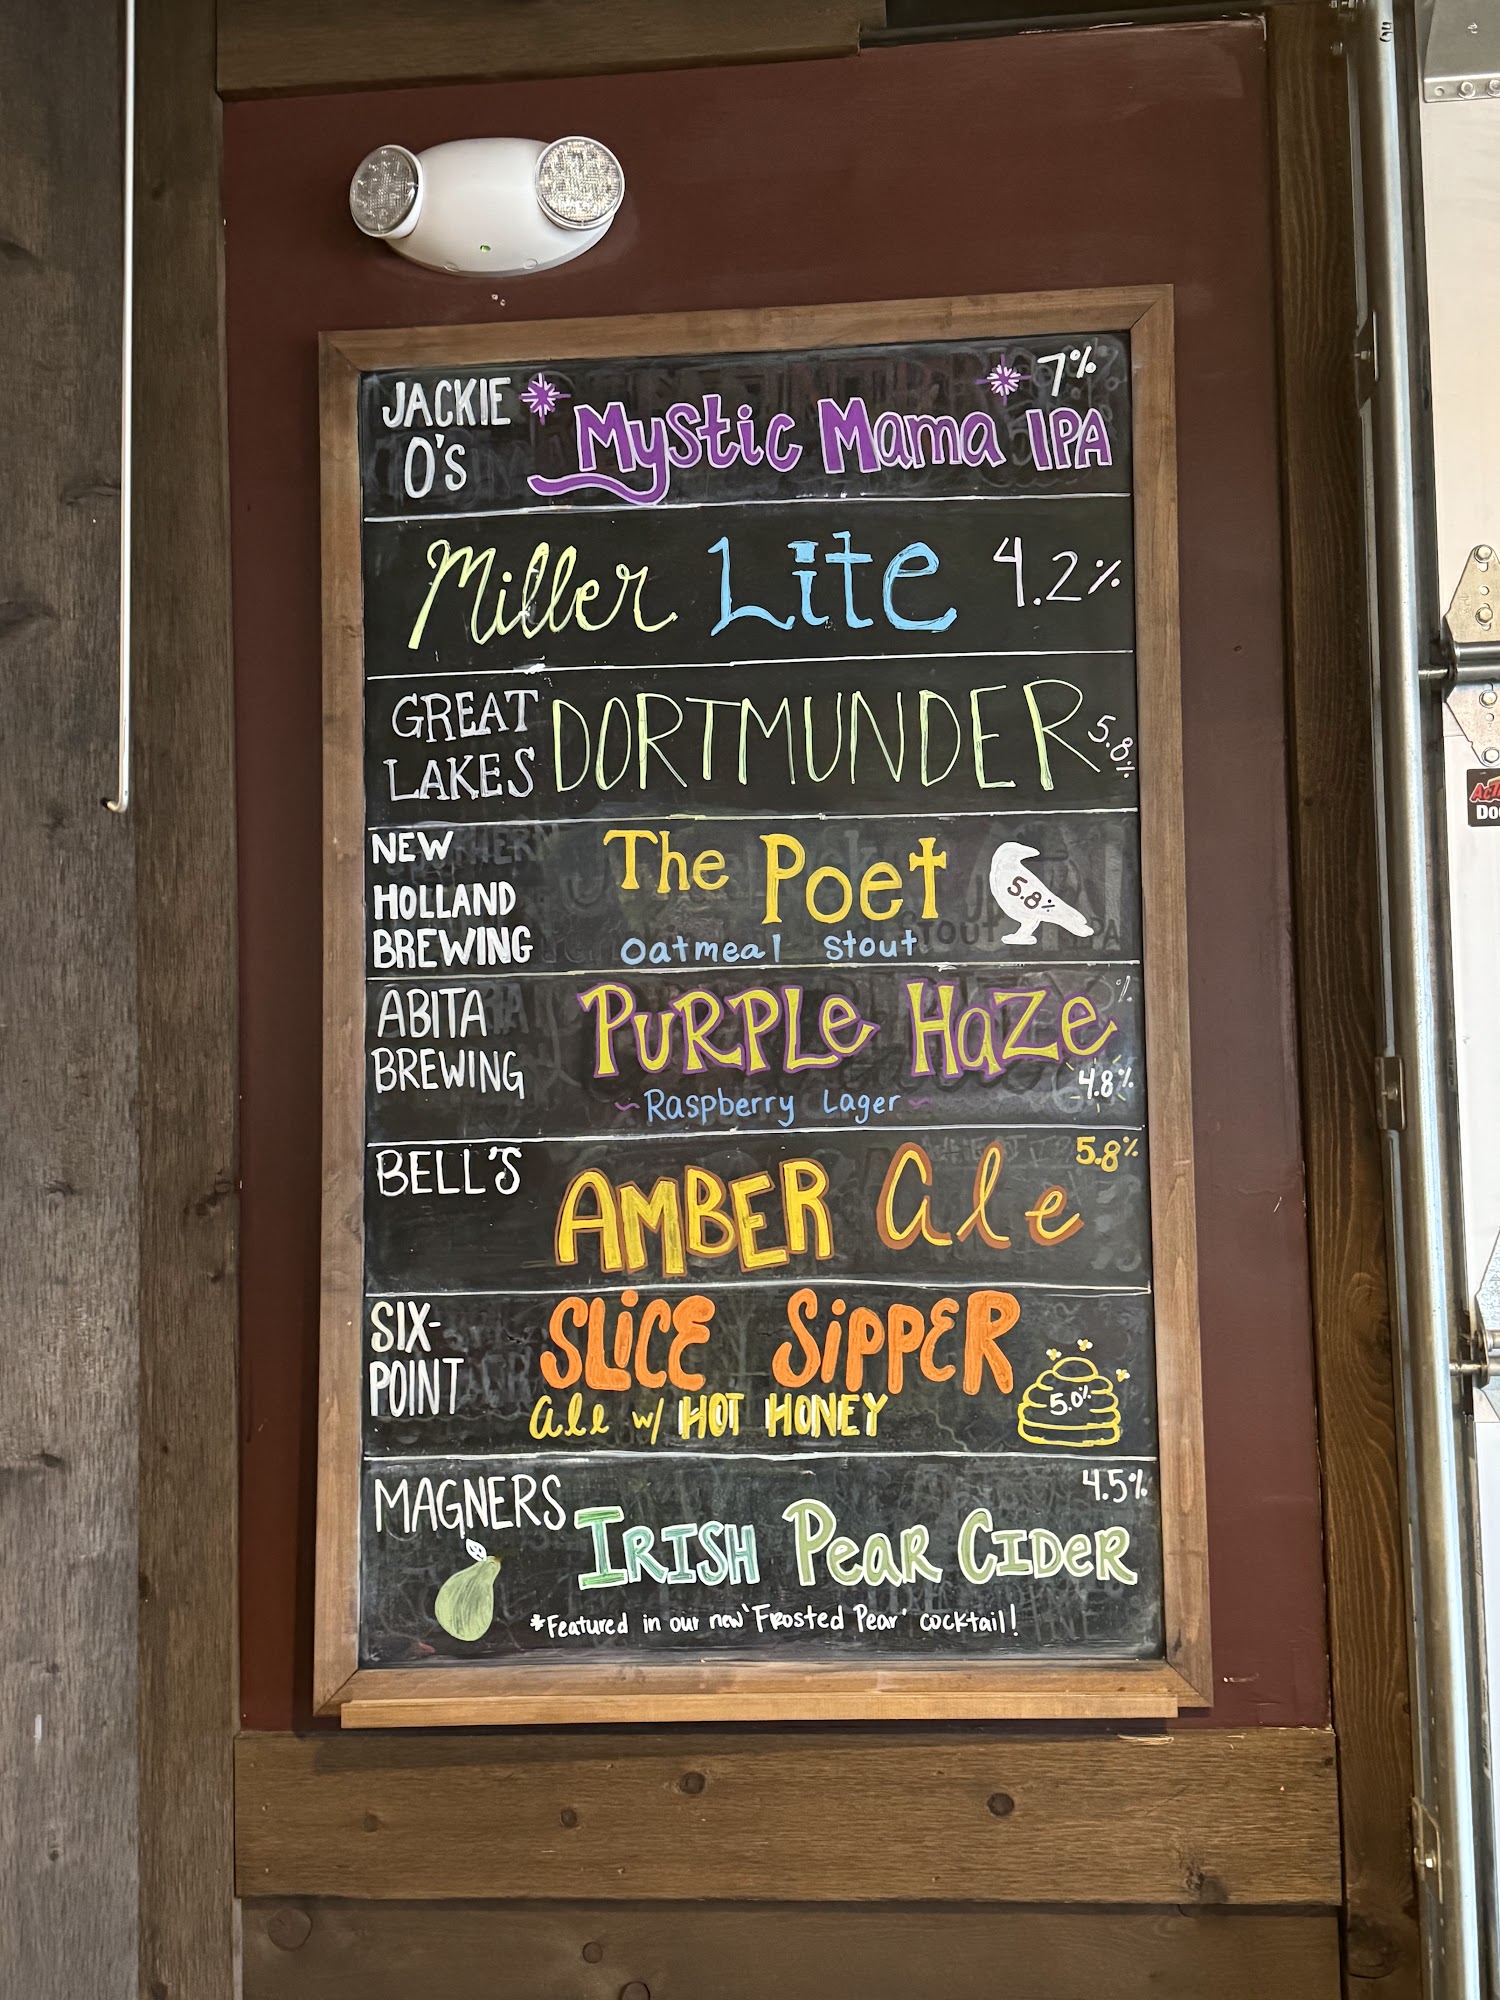 JACKIE O'S
Mystic Mama IPA 7%
Miller Lite 4.2%
GREAT LAKES
DORTMUNDER 5.8%
NEW
HOLLAND
BREWING
The Poet
Oatmeal Stout
5.8%
ABITA
BREWING
PURPLE HAZE
Raspberry Lager
4.8%
BELL'S
AMBER ale
5.8%
SIX-
POINT
SLICE SIPPER
ale w/ HOT HONEY
5.0%
MAGNERS
IRISH PEAR CIDER
4.5%
*Featured in our new 'Frosted Pear' cocktail!